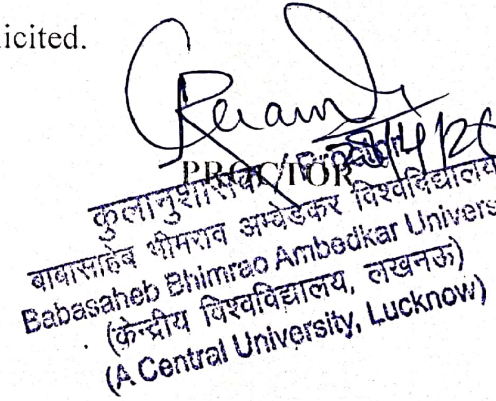 licited.
PROCTOR
कुलानुशासक / Proctor
बाबासाहेब भीमराव अम्बेडकर विश्वविद्यालय
Babasaheb Bhimrao Ambedkar Univers
(केन्द्रीय विश्वविद्यालय, लखनऊ)
(A Central University, Lucknow)